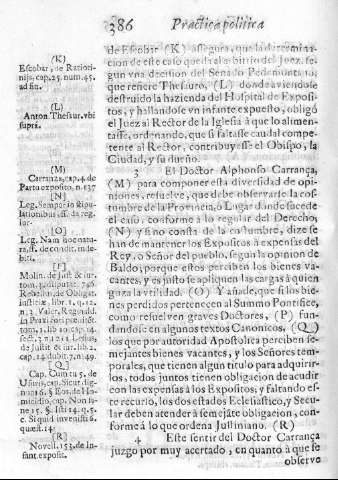 386 Practica politica
(K)
Escobar, de Ratioci-
nijs, cap. 25. num. 45.
ad fin.
(L)
Anton. Thesaur. vbi
suprà.
(M)
Carranza, cap. 4. de
Partu exposito, n. 137
[N]
Leg. Semper in stipu-
lationibus, ff. de reg.
iur.
[O]
Leg. Nam hoc natu-
ra, ff. de condit. inde-
biti.
[P]
Molin. de Just. & iur.
Rebellus, de Obligat.
Justitiæ, lib. 1. q. 12.
n. 3. Valer. Reginald.
in Praxi fori pœnitent.
tom. 1. lib. 10. cap. 14.
sect. 3. Lesius,
de Justit. & iur. lib. 2.
cap. 14. dubit. 7. n. 49.
[Q]
Cap. Cum tu, 5. de
Usuris, cap. Sicut dig-
§. Eos, de Ho-
micidio, cap. Non sa-
ne 15. §. Isti 14. q. 5.
c. Si quid inventum 6.
quæst. 14.
[R]
Novell. 153. de In-
fant. exposit.
de Escobar (K) assegura, que la determinac-
cion de este caso queda al arbitrio del Juez, se-
gun vna decision del Senado Pedemontano,
que refiere Thesauro, (L) donde aviendose
destruido la hazienda del Hospital de Exposi-
tos, y hallandose vn infante expuesto, obligò
el Juez al Rector de la Iglesia à que lo alimen-
tasse, ordenando, que si faltasse caudal compe-
tente al Rector, contribuyesse el Obispo, la
Ciudad, y su dueño.
3 El Doctor Alphonso Carrança,
(M) para componer esta diversidad de opi-
niones, resuelve, que debe observarse la cos-
tumbre de la Provincia, ò Lugar donde sucede
el caso, conforme à lo regular del Derecho,
(N) y si no consta de la costumbre, dize se
han de mantener los Expositos à expensas del
Rey, ò Señor del pueblo, segun la opinion de
Baldo, porque estos perciben los bienes va-
cantes, y es justo se apliquen las cargas à quien
goza la vtilidad. (O) Y añade, que si los bie-
nes perdidos pertenecen al Summo Pontifice,
como resuelven graves Doctores, (P) fun-
dandose en algunos textos Canonicos, (Q)
los que por autoridad Apostolica perciben se-
mejantes bienes vacantes, y los Señores tem-
porales, que tienen algun titulo para adquirir-
los, todos juntos tienen obligacion de acudir
con las expensas à los Expositos, y faltando es-
te recurso, los dos estados Eclesiastico, y Secu-
lar deben atender à semejante obligacion, con-
forme à lo que ordena Justiniano. (R)
4 Este sentir del Doctor Carrança
juzgo por muy acertado, en quanto à que se
observe